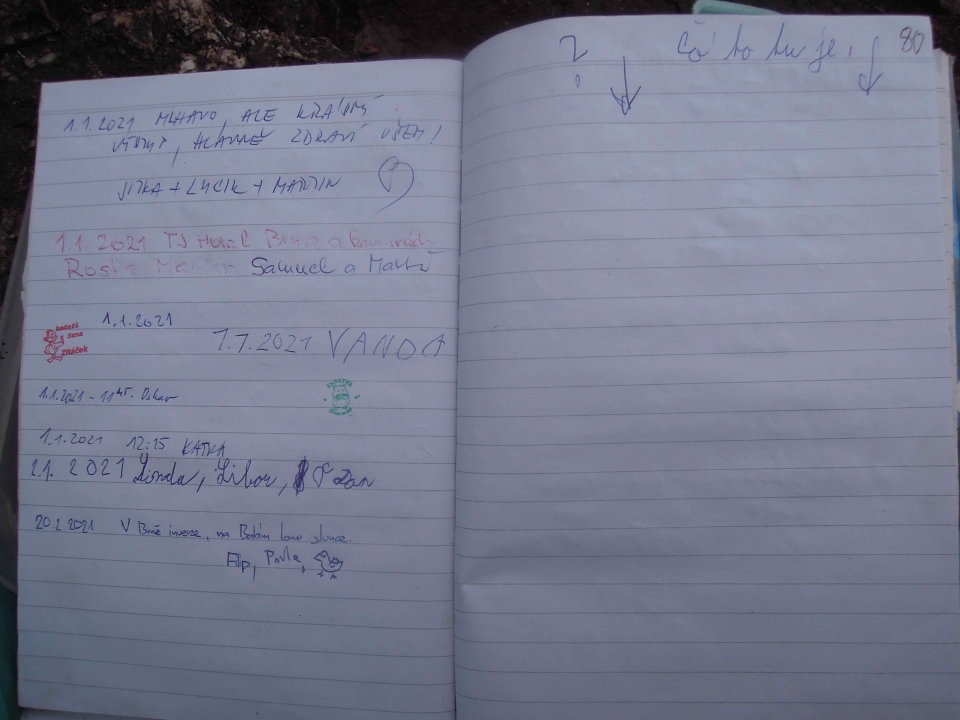 1.1.2021 MLHAVO, ALE KRÁSNÝ
VÝSTUP, HLAVNĚ ZDRAVÍ VŠEM!
JITKA + LUCIK + MARTIN
1.1.2021 TJ Brno a kamarádi
Rosťa Martin Samuel a
1.1.2021
1.1.2021 VANDA
1.1.2021 - 11 45 - Oskar
1.1.2021 12:15 KATKA
2.1. 2021 Linda, Libor, Dan
20.2.2021 V Brně inverze, na slunce.
Filip, Pavla,
?
Co to tu je, 80